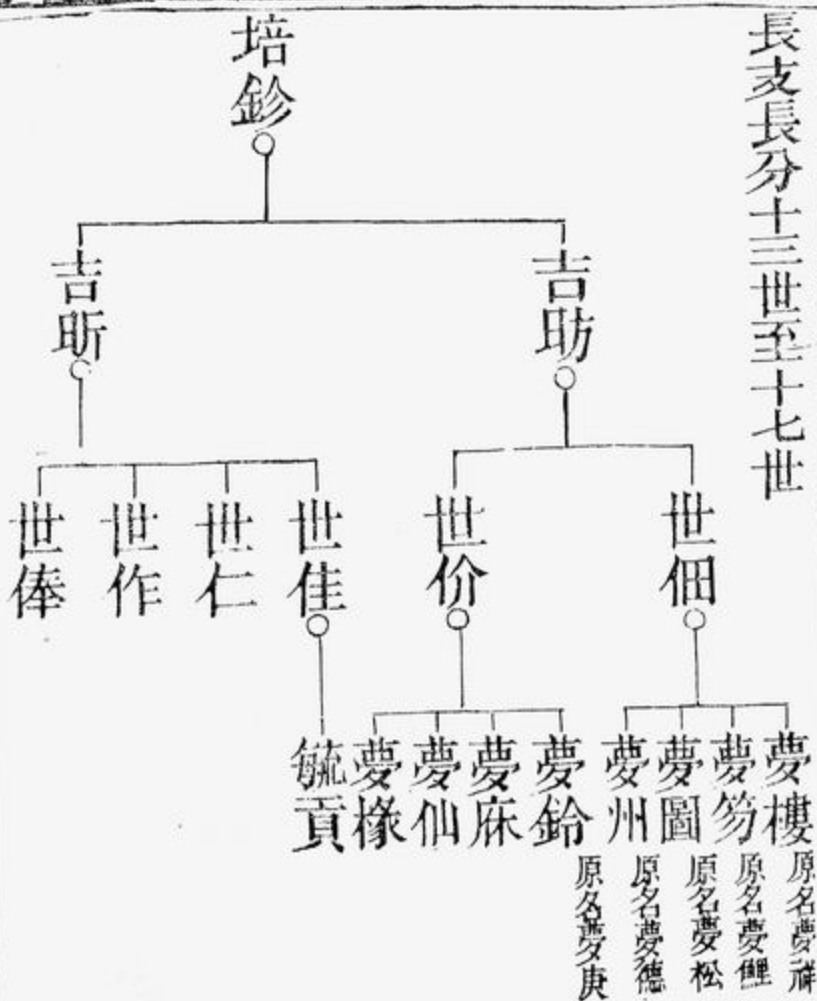 長支長分十三世至十七世
培鉁
吉昉
吉昕
世佃
世价
世佳
世仁
世作
世俸
夢樓 原名夢祥
夢笏 原名夢鯉
夢圖 原名夢松
夢州 原名夢德
夢鈴 原名夢庚
夢庥
夢仙
夢椽
毓貢